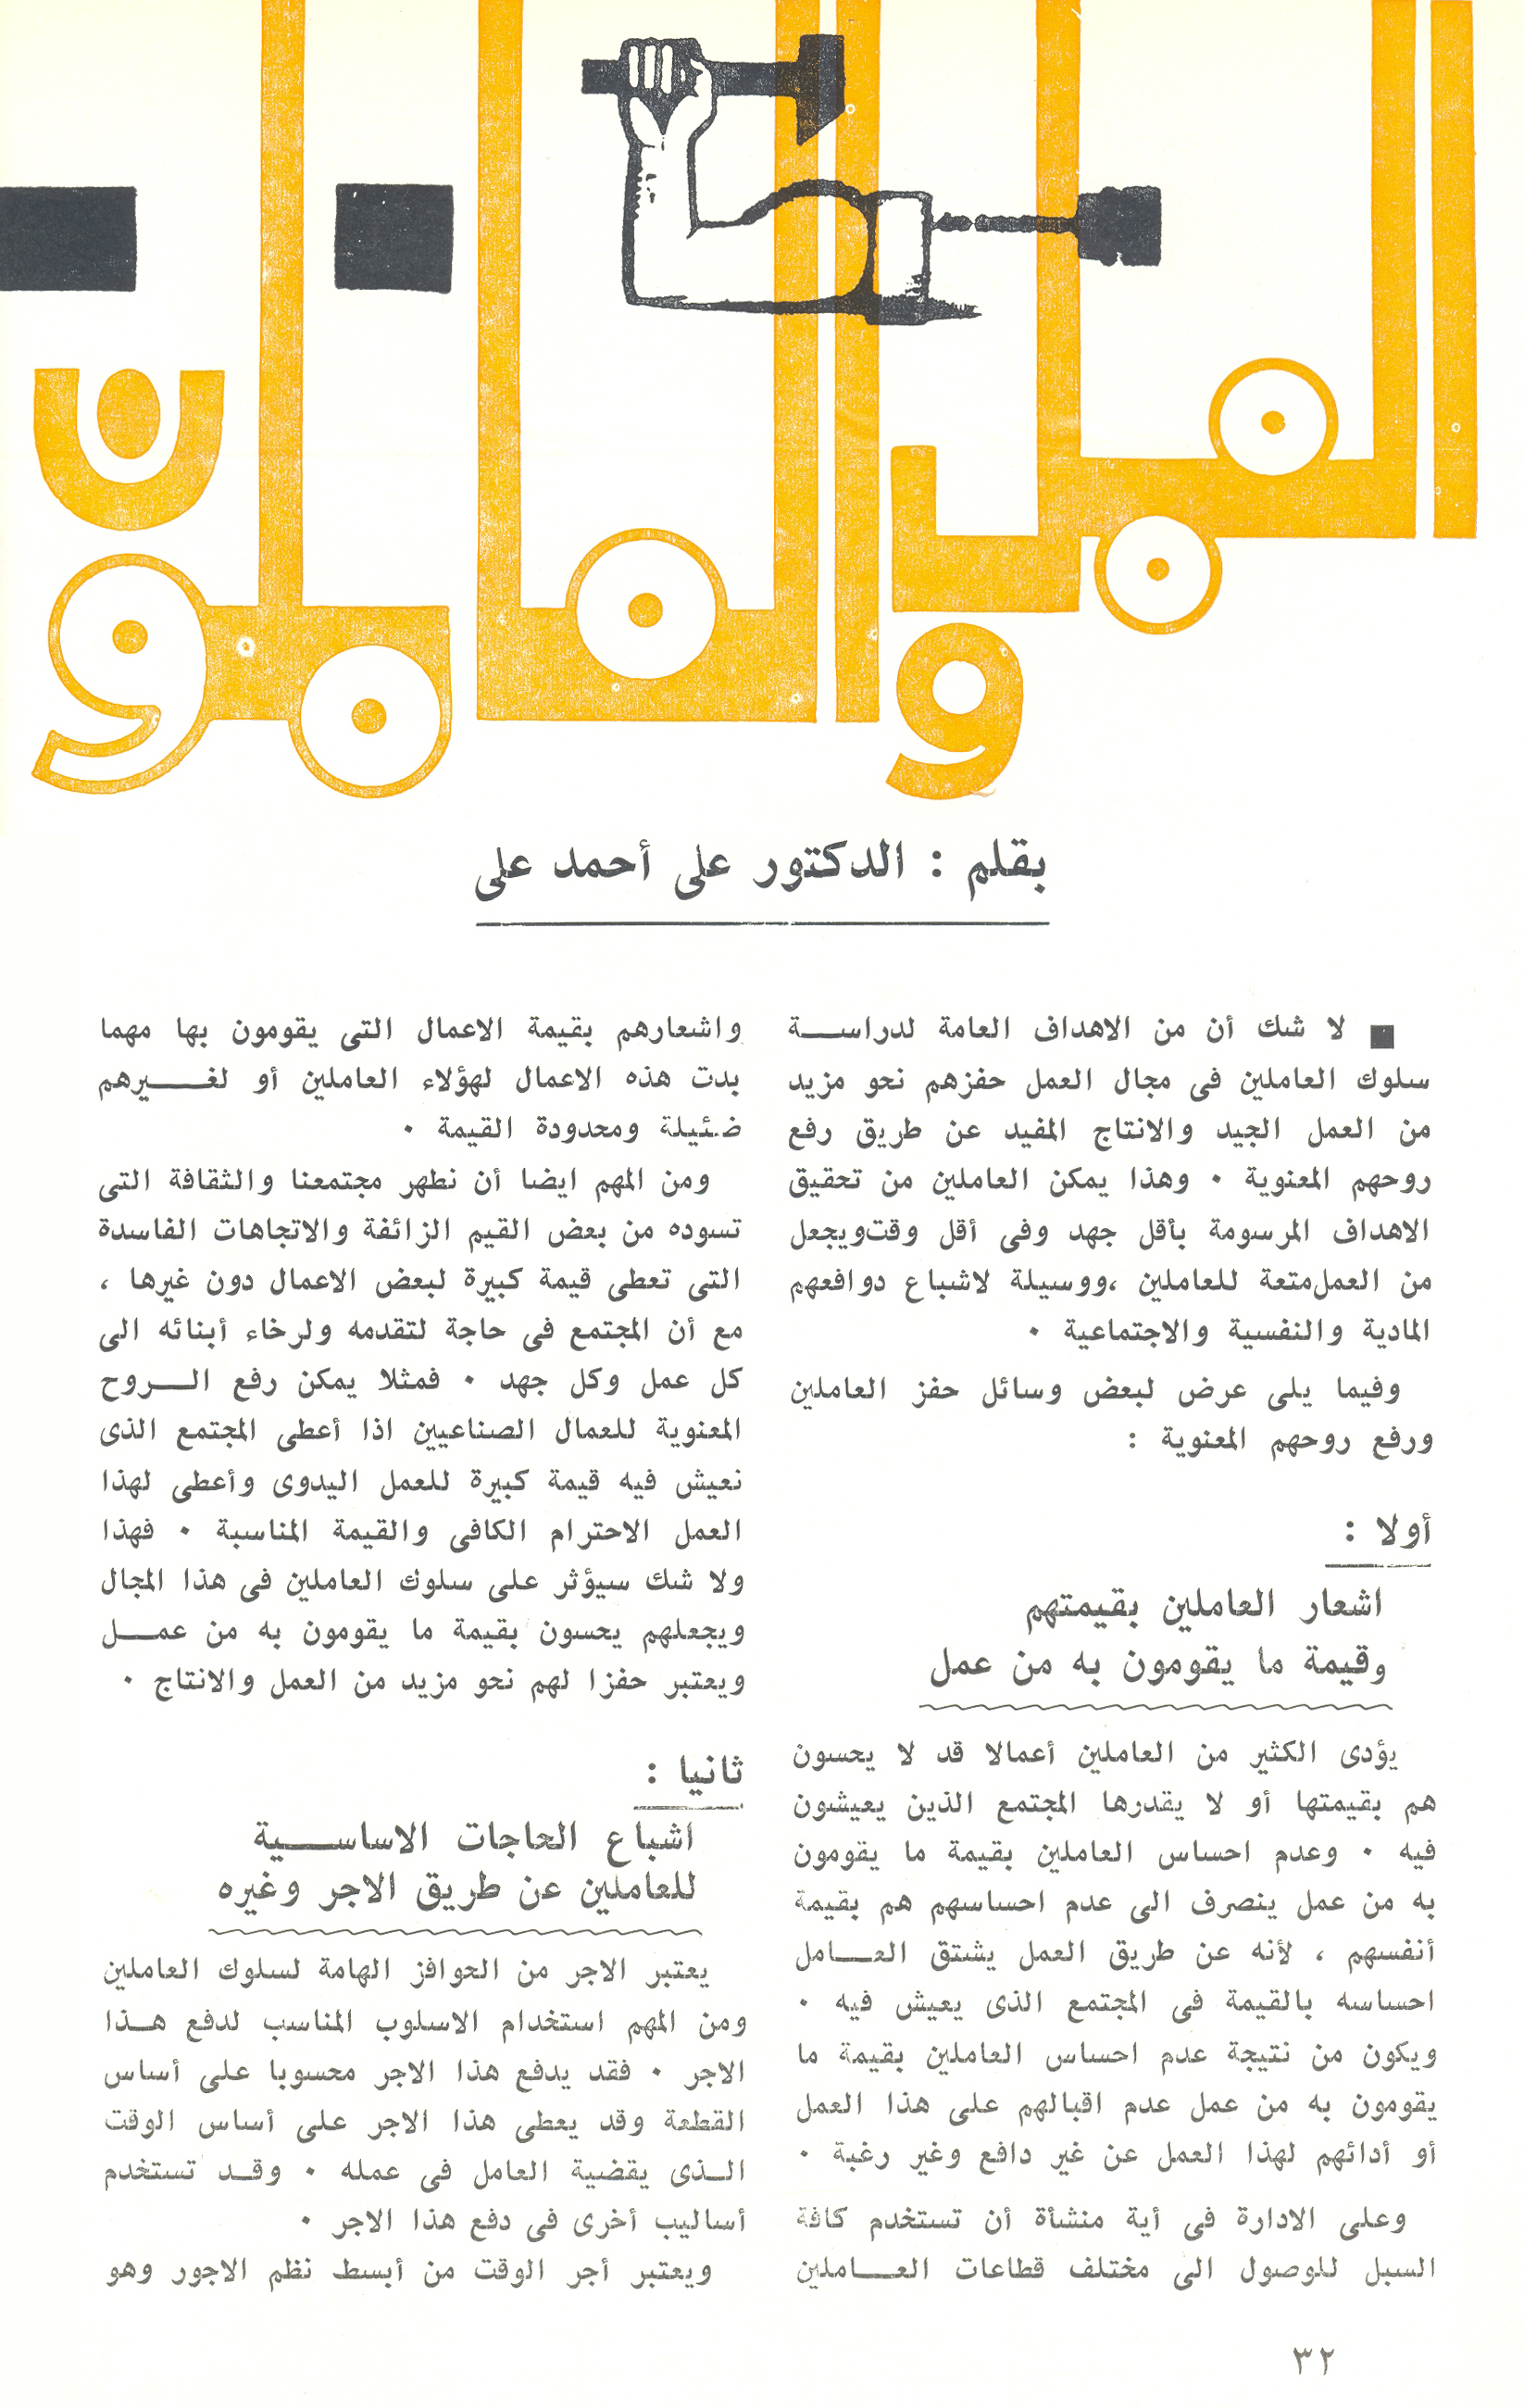 العمل
والعاملون
بقلم : الدكتور على أحمد على
لا شك أن من الاهداف العامة لدراســة
سلوك العاملين فى مجال العمل حفزهم نحو مزيد
من العمل الجيد والانتاج المفيد عن طريق رفع
روحهم المعنوية ٠ وهذا يمكن العاملين من تحقيق
الاهداف المرسومة بأقل جهد وفى أقل وقت ويجعل
من العمل متعة للعاملين ،ووسيلة لاشباع دوافعهم
المادية والنفسية والاجتماعية ٠
وفيما يلى عرض لبعض وسائل حفز العاملين
ورفع روحهم المعنوية :
أولا :
اشعار العاملين بقيمتهم
وقيمة ما يقومون به من عمل
يؤدى الكثير من العاملين أعمالا قد لا يحسون
هم بقيمتها أو لا يقدرها المجتمع الذين يعيشون
فيه ٠ وعدم احساس العاملين بقيمة ما يقومون
به من عمل ينصرف الى عدم احساسهم هم بقيمة
أنفسهم ، لأنه عن طريق العمل يشتق العــامل
احساسه بالقيمة فى المجتمع الذى يعيش فيه ٠
ويكون من نتيجة عدم احساس العاملين بقيمة ما
يقومون به من عمل عدم اقبالهم على هذا العمل
أو أدائهم لهذا العمل عن غير دافع وغير رغبة ٠
وعلى الادارة فى أية منشأة أن تستخدم كافة
السبل للوصول الى مختلف قطاعات العــاملين
واشعارهم بقيمة الاعمال التى يقومون بها مهما
بدت هذه الاعمال لهؤلاء العاملين أو لغــيرهم
ضئيلة ومحدودة القيمة ٠
ومن المهم ايضا أن نطهر مجتمعنا والثقافة التى
تسوده من بعض القيم الزائفة والاتجاهات الفاسدة
التى تعطى قيمة كبيرة لبعض الاعمال دون غيرها ،
مع أن المجتمع فى حاجة لتقدمه ولرخاء أبنائه الى
كل عمل وكل جهد ٠ فمثلا يمكن رفع الــروح
المعنوية للعمال الصناعيين اذا أعطى المجتمع الذى
نعيش فيه قيمة كبيرة للعمل اليدوى وأعطى لهذا
العمل الاحترام الكافى والقيمة المناسبة ٠ فهذا
ولا شك سيؤثر على سلوك العاملين فى هذا المجال
ويجعلهم يحسون بقيمة ما يقومون به من عمــل
ويعتبر حفزا لهم نحو مزيد من العمل والانتاج ٠
ثانيا :
اشباع الحاجات الاساســية
للعاملين عن طريق الاجر وغيره
يعتبر الاجر من الحوافز الهامة لسلوك العاملين
ومن المهم استخدام الاسلوب المناسب لدفع هــذا
الاجر ٠ فقد يدفع هذا الاجر محسوبا على أساس
القطعة وقد يعطى هذا الاجر على أساس الوقت
الــذى يقضية العامل فى عمله ٠ وقــد تستخدم
أساليب أخرى فى دفع هذا الاجر ٠
ويعتبر أجر الوقت من أبسط نظم الاجور وهو
٣٢